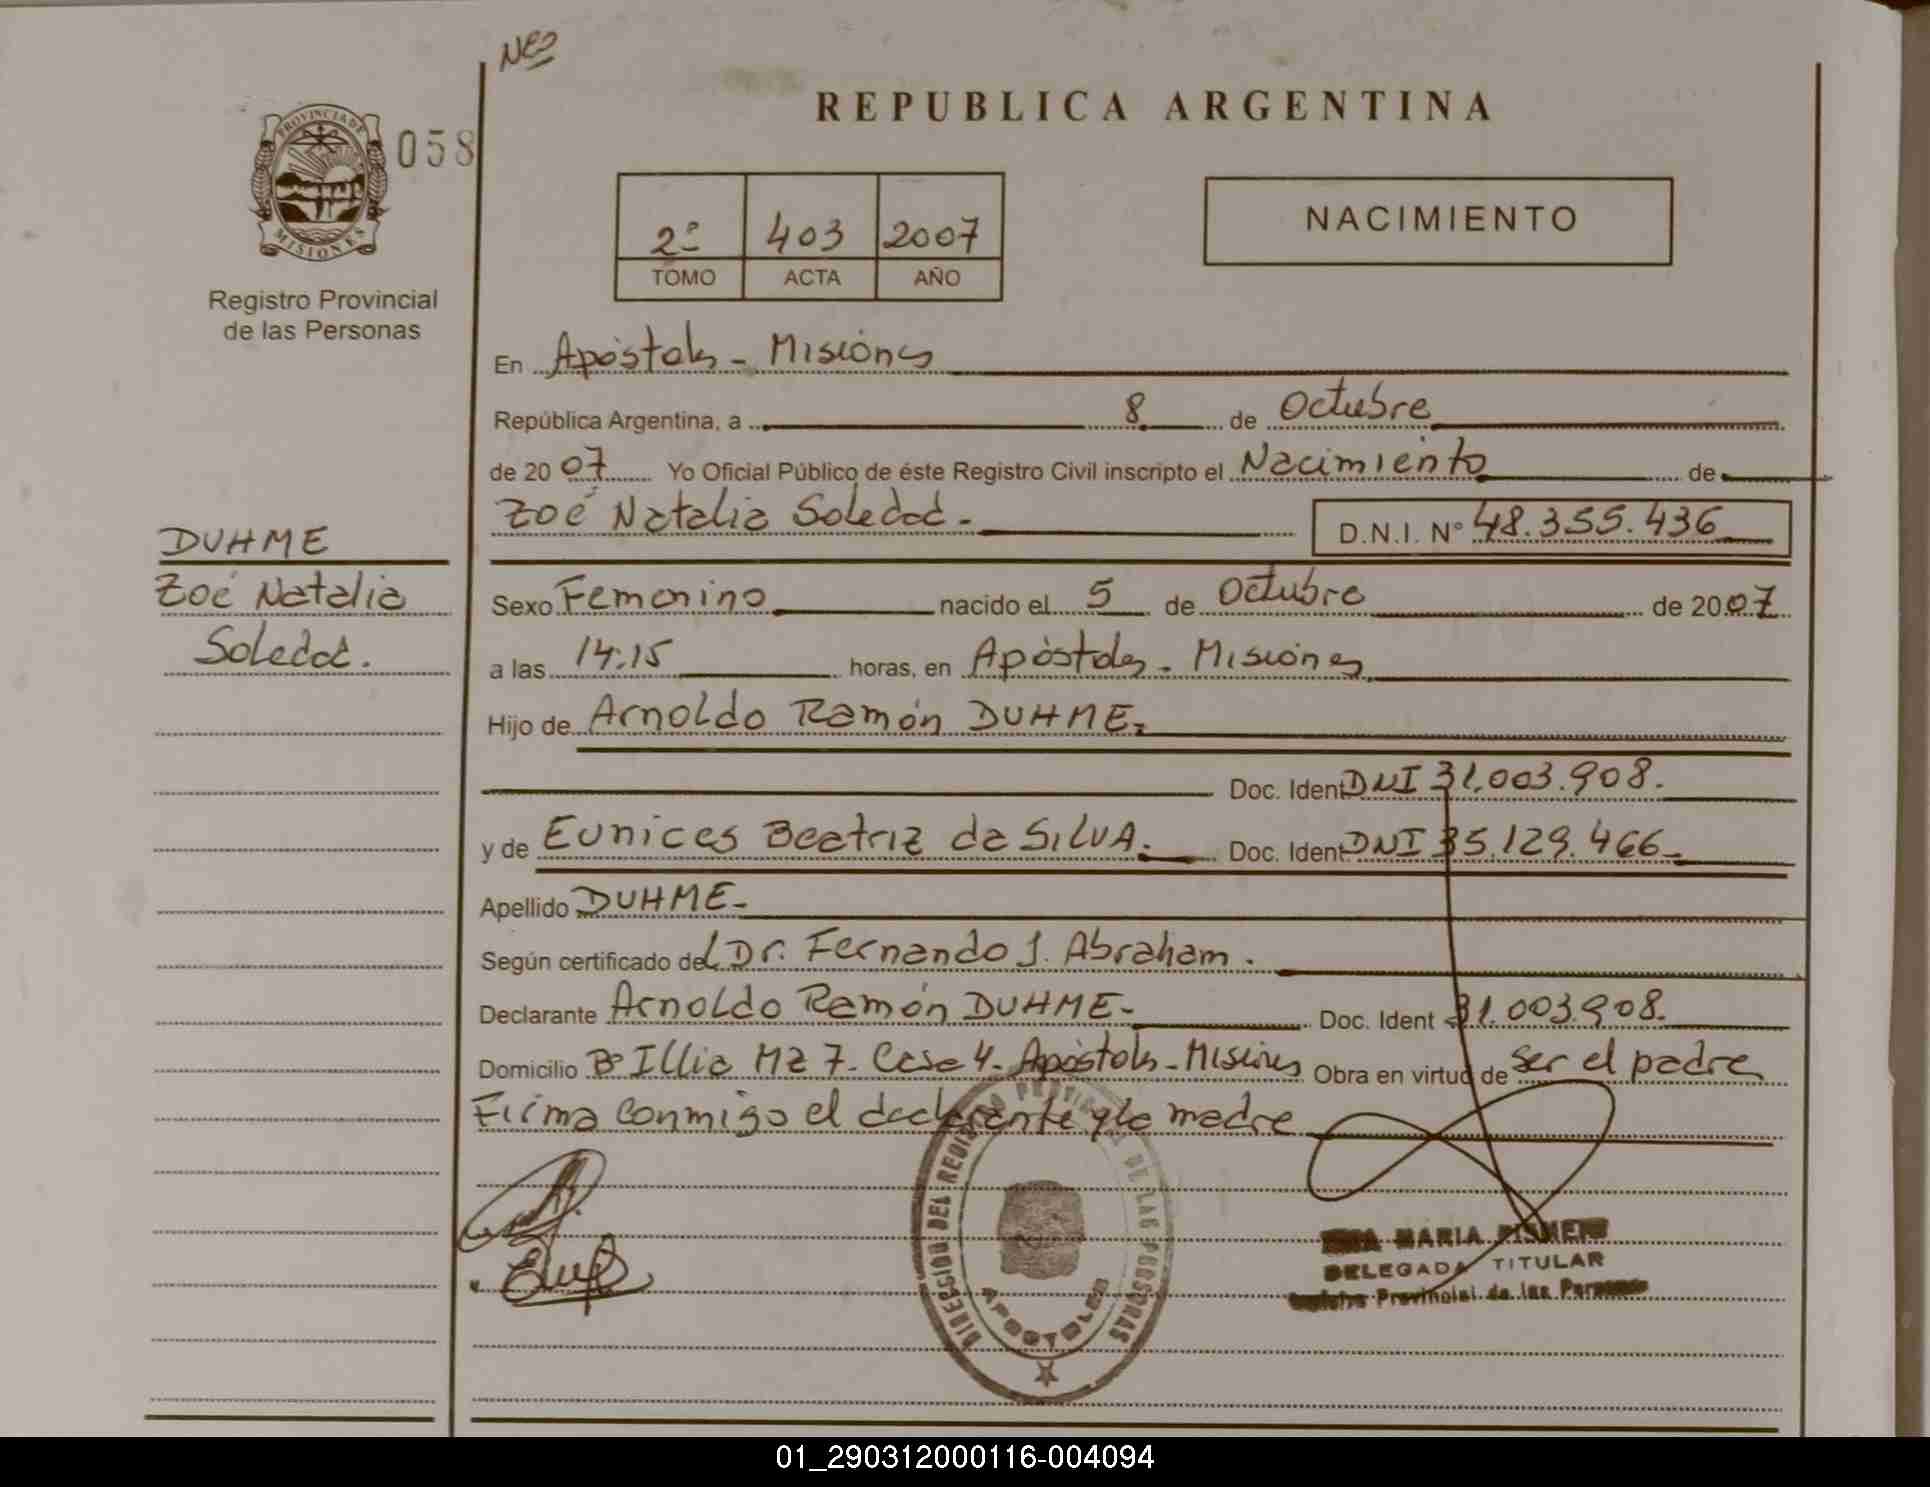 NES
REPUBLICA ARGENTINA
PROVINCIA DE
MISIONES
058
Registro Provincial
de las Personas
2º 403 2007
TOMO ACTA AÑO
NACIMIENTO
En Apóstoles - Misiones
República Argentina, a 8 de Octubre
de 2007 Yo Oficial Público de éste Registro Civil inscripto el Nacimiento de
Zoé Natalia Soledad.- D.N.I. Nº 48.355.436
DUHME
Zoé Natalia
Soledad.
Sexo Femenino nacido el 5 de Octubre de 2007
a las 14.15 horas, en Apóstoles - Misiones
Hijo de Arnoldo Ramón DUHME.
Doc. Ident DNI 31.003.908.
y de Eunices Beatriz da SILVA. Doc. Ident DNI 35.129.466
Apellido DUHME-
Según certificado del Dr. Fernando J. Abraham.
Declarante Arnoldo Ramón DUHME- Doc. Ident 31.003.908.
Domicilio Bº Illia Mz 7- Casa 4- Apóstoles - Misiones Obra en virtud de ser el padre
Firma conmigo el declarante y la madre
DIRECCION DEL REGISTRO PROVINCIAL DE LAS PERSONAS
APOSTOLES
MARIA
DELEGADA TITULAR
Provincial de las Personas
01_290312000116-004094